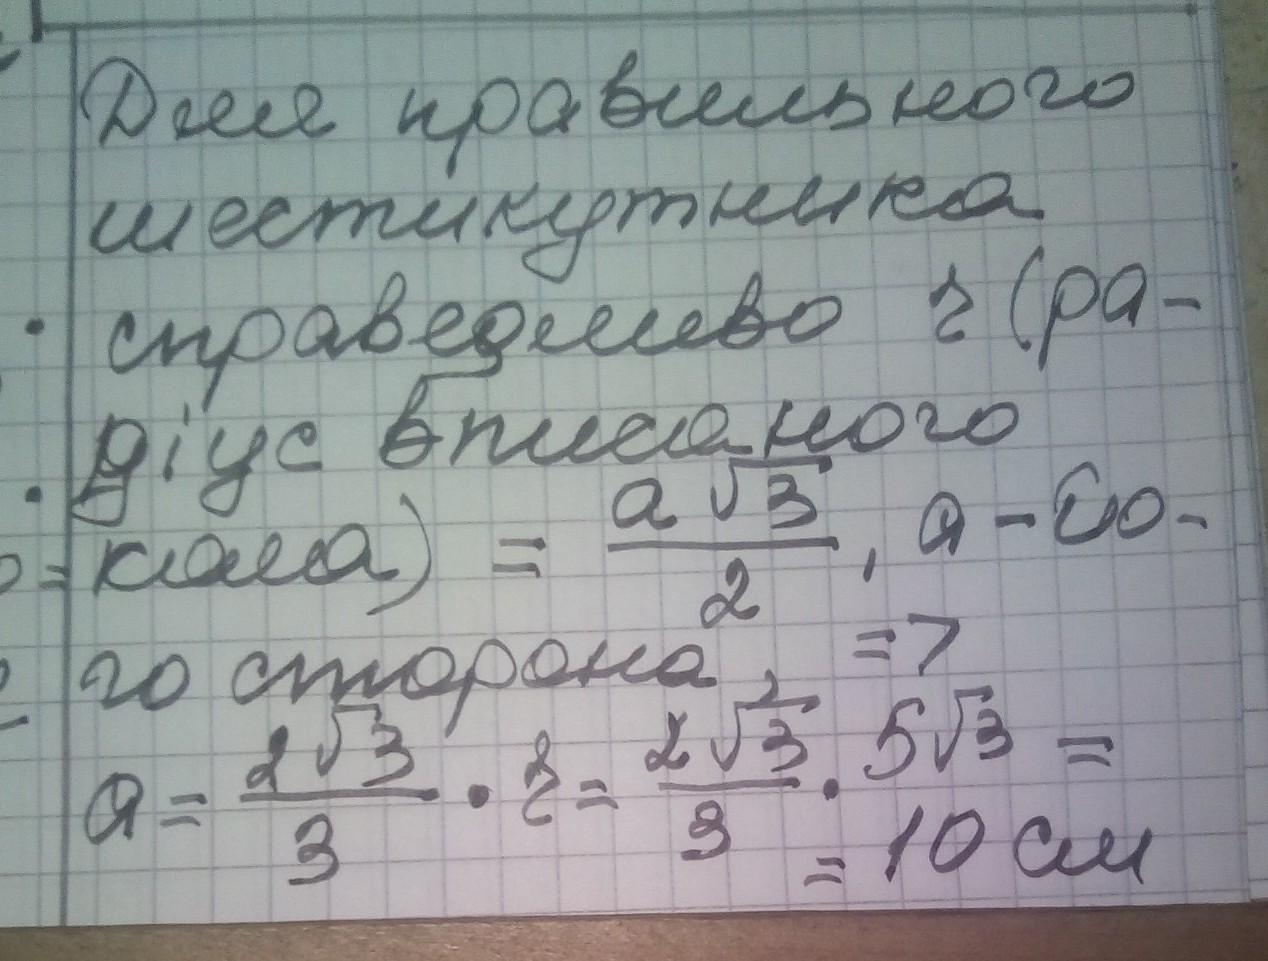 Для правильного
шестикутника
справедливо r (ра-
діус вписаного
кола) = a√3/2, a - йо-
го сторона =>
a = 2√3/3 · r = 2√3/3 · 5√3 =
= 10 см